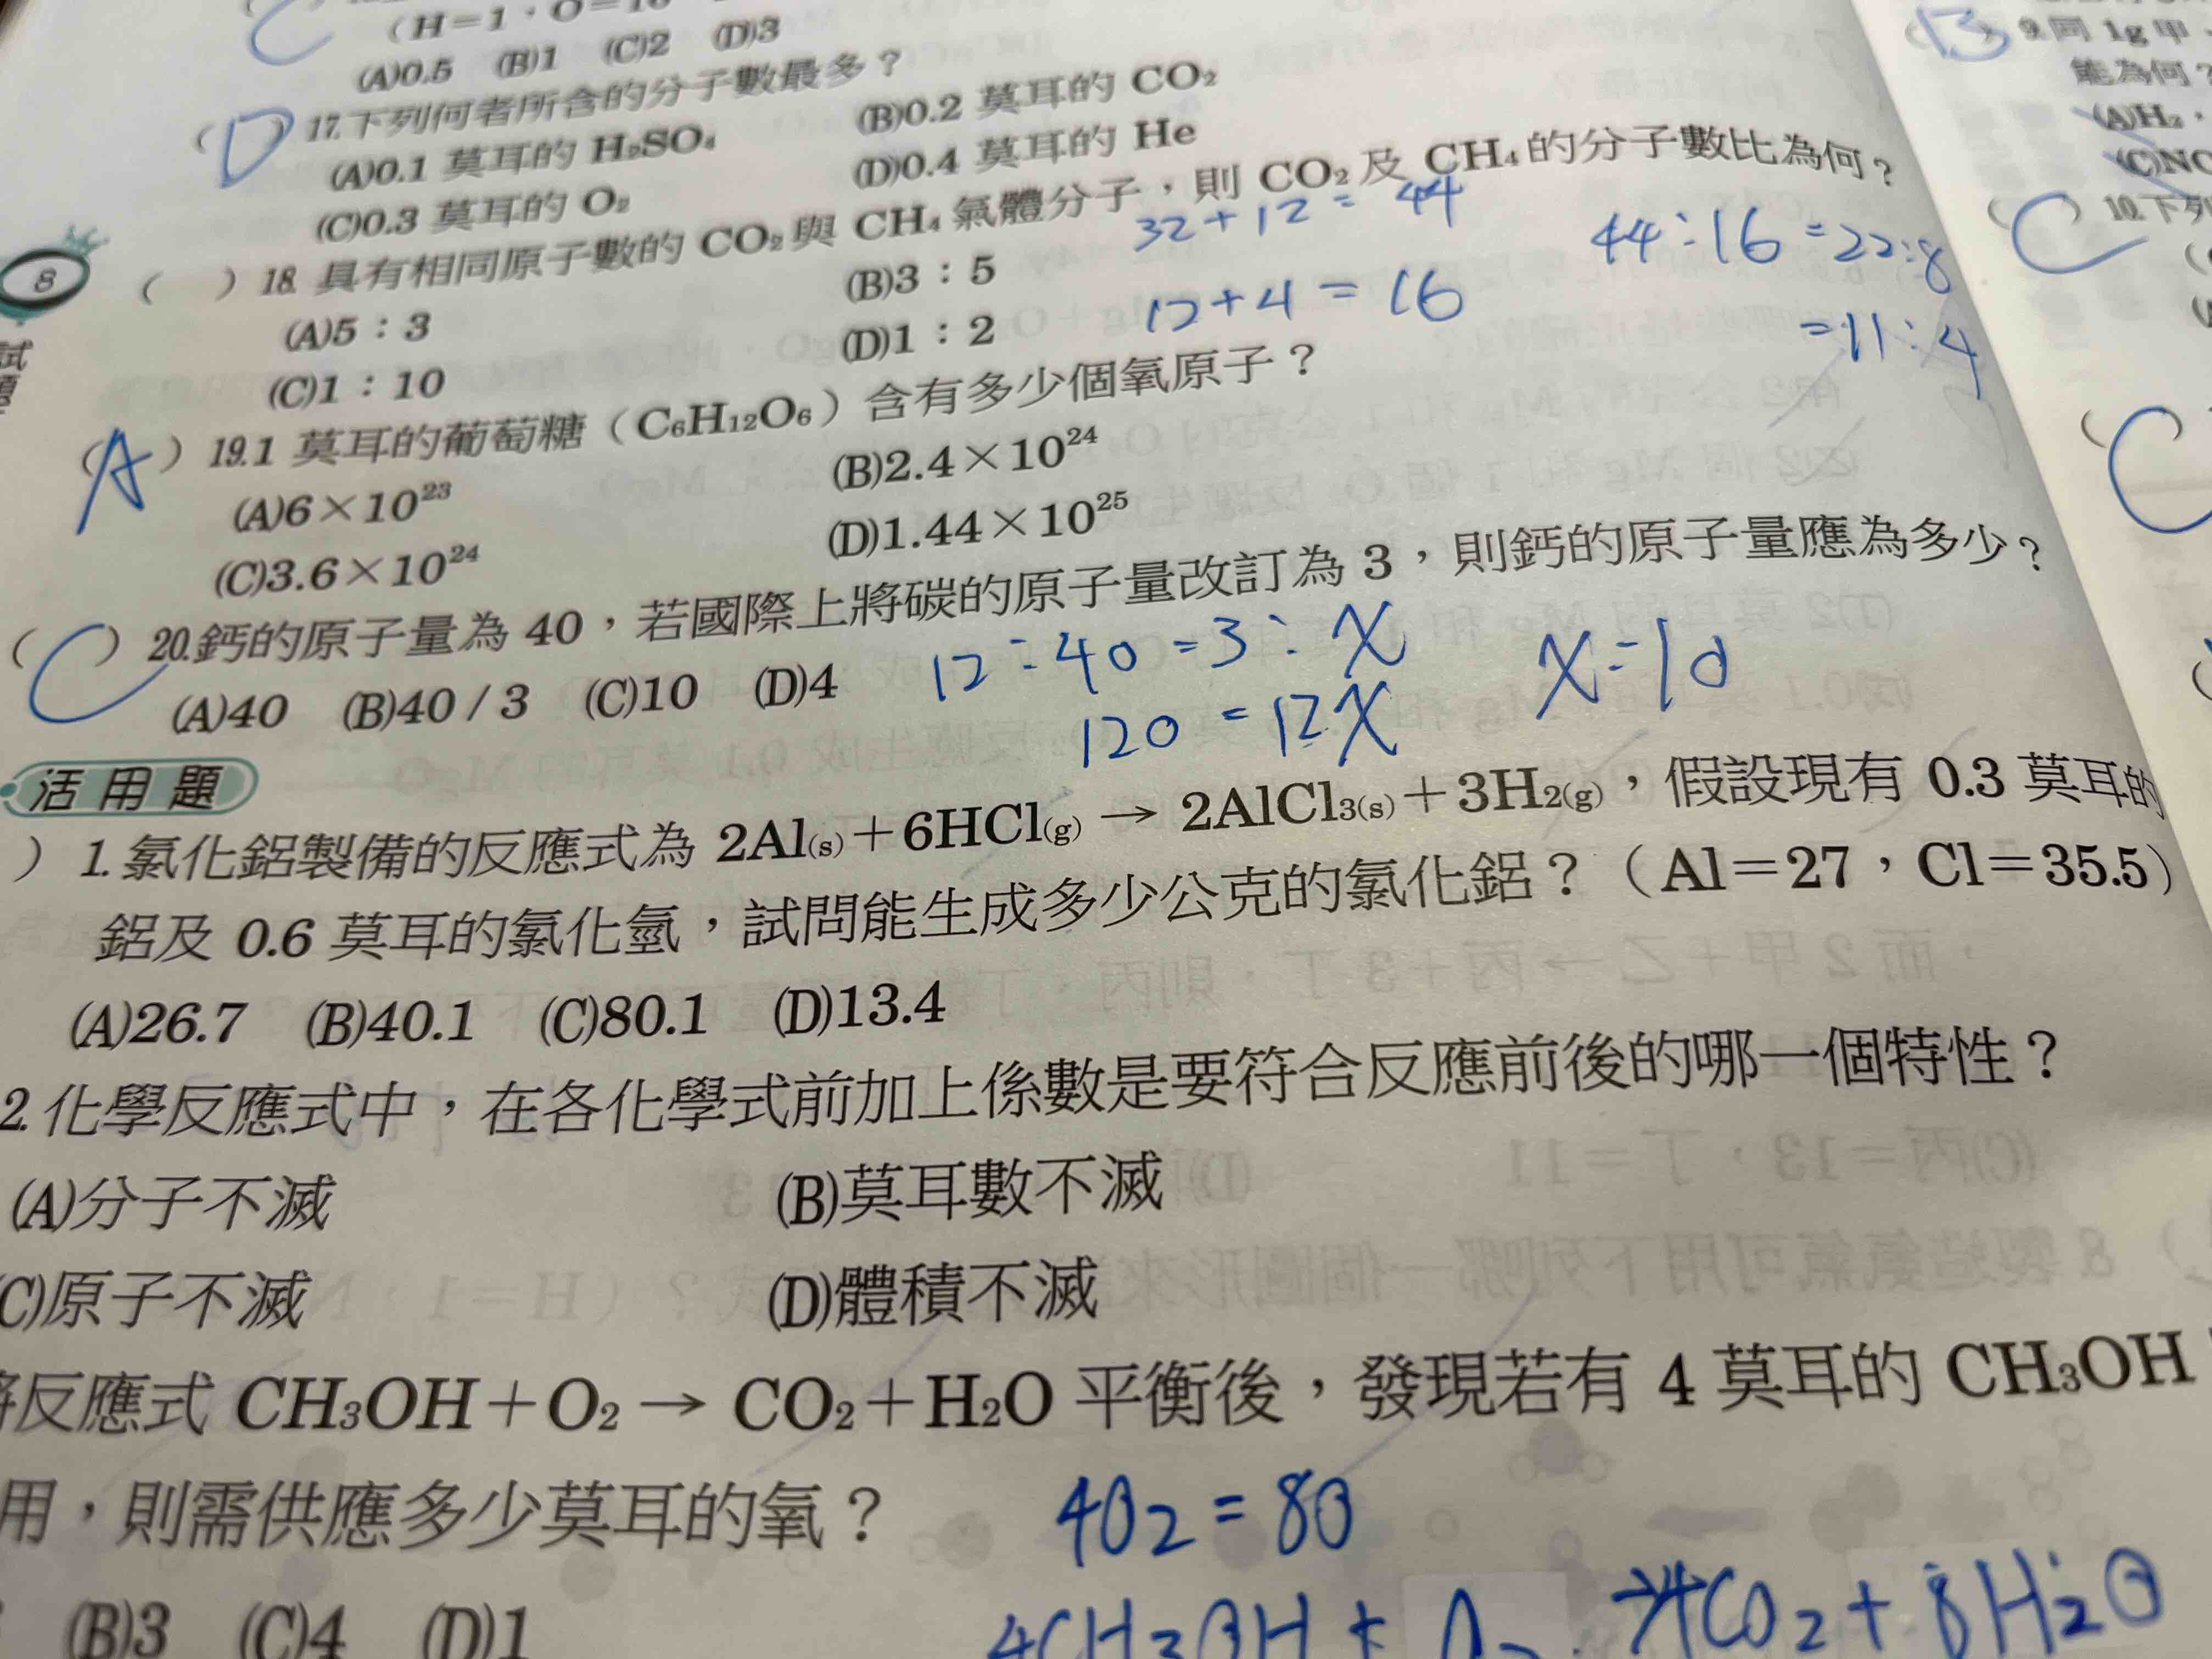 (H=1，O=16
(A)0.5 (B)1 (C)2 (D)3
(D) 17.下列何者所含的分子數最多？
(A)0.1 莫耳的 H₂SO₄ (B)0.2 莫耳的 CO₂
(C)0.3 莫耳的 O₂ (D)0.4 莫耳的 He
( ) 18. 具有相同原子數的 CO₂ 與 CH₄ 氣體分子，則 CO₂ 及 CH₄ 的分子數比為何？
32+12=44
44:16=22:8
(A)5：3 (B)3：5
12+4=16
=11:4
(C)1：10 (D)1：2
(A) 19.1 莫耳的葡萄糖（C₆H₁₂O₆）含有多少個氧原子？
(A)6×10²³ (B)2.4×10²⁴
(C)3.6×10²⁴ (D)1.44×10²⁵
(C) 20.鈣的原子量為 40，若國際上將碳的原子量改訂為 3，則鈣的原子量應為多少？
(A)40 (B)40 / 3 (C)10 (D)4
12:40=3:X X=10
120=12X
活用題
) 1.氯化鋁製備的反應式為 2Al(s)+6HCl(g) → 2AlCl₃(s)+3H₂(g)，假設現有 0.3 莫耳的
鋁及 0.6 莫耳的氯化氫，試問能生成多少公克的氯化鋁？（Al=27，Cl=35.5）
(A)26.7 (B)40.1 (C)80.1 (D)13.4
2.化學反應式中，在各化學式前加上係數是要符合反應前後的哪一個特性？
(A)分子不滅 (B)莫耳數不滅
(C)原子不滅 (D)體積不滅
反應式 CH₃OH+O₂ → CO₂+H₂O 平衡後，發現若有 4 莫耳的 CH₃OH
用，則需供應多少莫耳的氧？
4O₂=8O
(B)3 (C)4 (D)1
4CH₃OH+ O₂ →4CO₂+8H₂O
8
試
題
B 9.同 1g 甲、
能為何？
(A)H₂，
(C)NO
(C) 10.下列
C